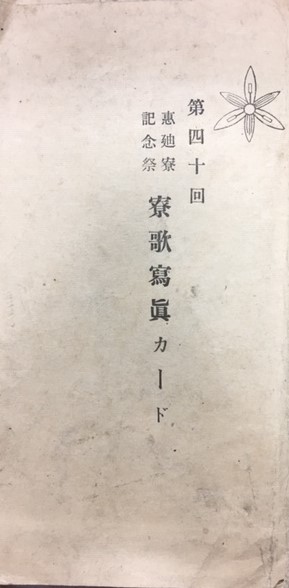 第四十回
惠迪寮
記念祭
寮歌寫眞カード